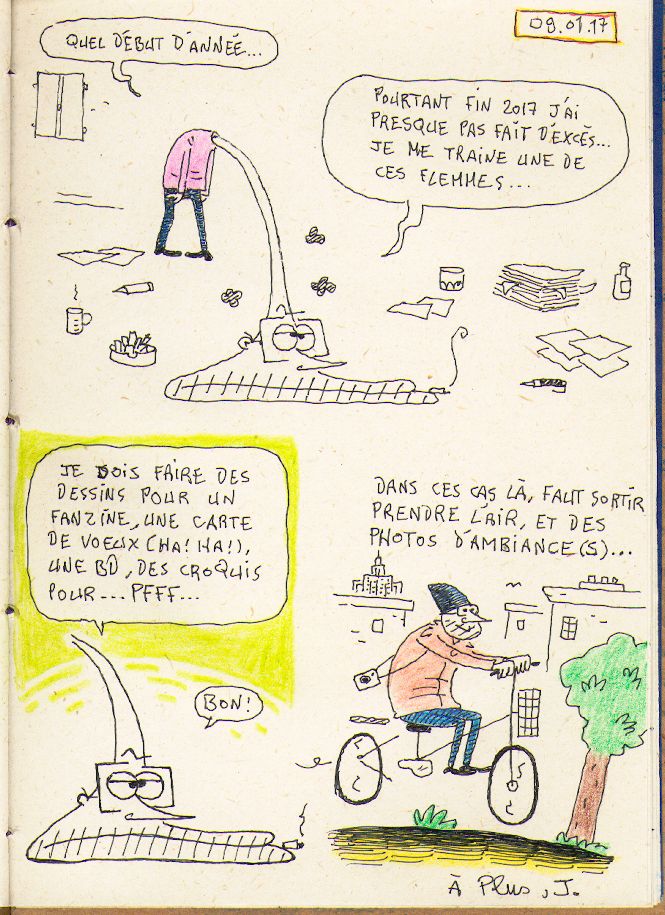 09.01.17
QUEL DÉBUT D'ANNÉE...
POURTANT FIN 2017 J'AI
PRESQUE PAS FAIT D'EXCÈS...
JE ME TRAINE UNE DE
CES FLEMMES...
JE DOIS FAIRE DES
DESSINS POUR UN
FANZINE, UNE CARTE
DE VOEUX (HA! HA!),
UNE BD, DES CROQUIS
POUR... PFFF...
BON!
DANS CES CAS LÀ, FAUT SORTIR
PRENDRE L'AIR, ET DES
PHOTOS D'AMBIANCE(S)...
À Plus, J.